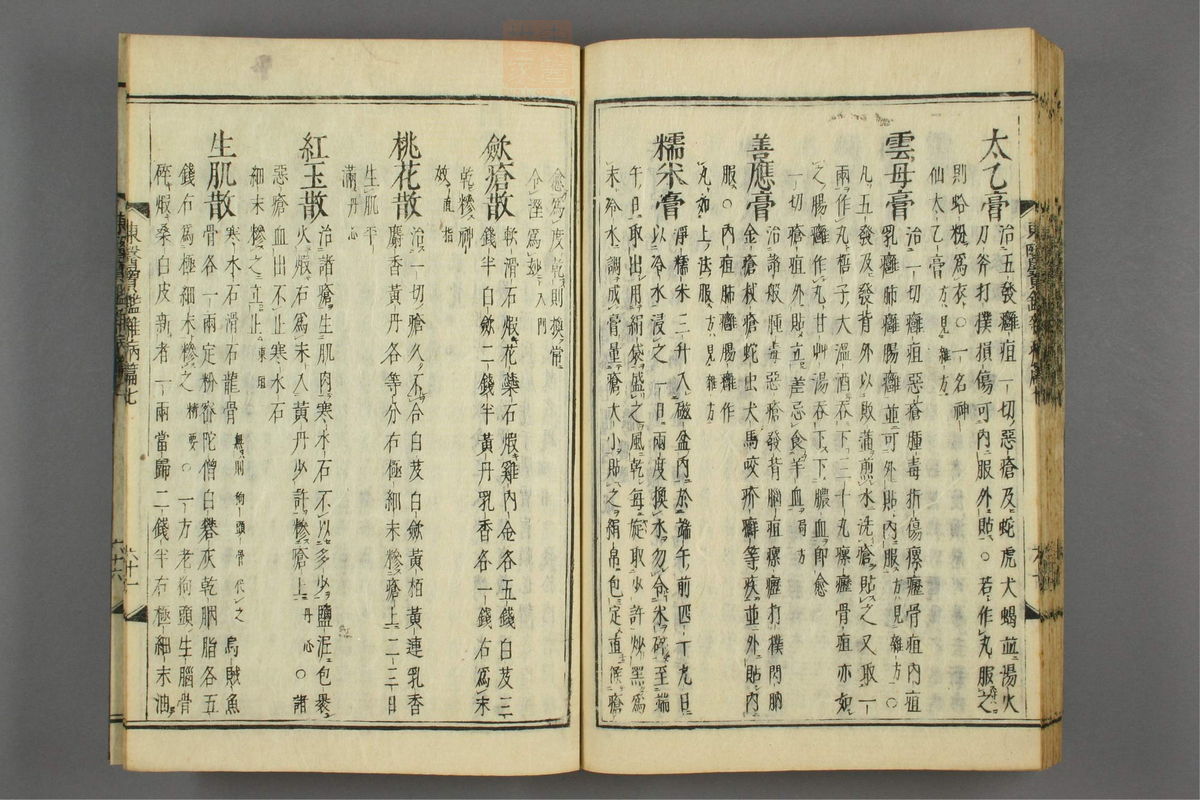 太乙膏 治五發癰疽一切惡瘡及蛇虎犬蝎並湯火
刀斧打撲損傷可內服外貼○若作丸服之
則蛤粉爲衣○一名神
仙太乙膏 方見雜方
雲母膏 治一切癰疽惡瘡腫毒折傷瘰癧骨疽內疽
乳癰肺癰腸癰並可外貼內服 方見雜方○
凡五發及發背外以敗蒲煎水洗瘡貼之又取一
兩作丸梧子大溫酒吞下三十丸瘰癧骨疽亦如
之腸癰作丸甘艸湯吞下下膿血卽愈
一切瘡疽外貼立差忌食羊血 局方
善應膏 治諸般腫毒惡瘡發背腦疽瘰癧打撲閃肭
金瘡杖瘡蛇虫犬馬咬疥癬等疾並外貼內
服○內疽肺癰腸癰作
丸如上法服 方見雜方
糯米膏 淨糯米三升入磁盆內於端午前四十九日
以冷水浸之一日兩度換水勿令米碎至端
午日取出用絹袋盛之風乾每旋取少許炒黑爲
末冷水調成膏量瘡大小貼之絹帛包定直候瘡
愈爲度乾則換常
令溼爲妙 入門
斂瘡散 軟滑石煅花蘂石煅雞內金各五錢白芨三
錢半白斂二錢半黃丹乳香各一錢右爲末
乾糝神
效 直指
桃花散 治一切瘡久不合白芨白斂黃栢黃連乳香
麝香黃丹各等分右極細末糝瘡上二三日
生肌平
滿 丹心
紅玉散 治諸瘡生肌肉寒水石不以多少鹽泥包褁
火煅右爲末入黃丹少許糝瘡上 丹心 ○諸
惡瘡血出不止寒水石
細末糝之立止 東垣
生肌散 寒水石滑石龍骨 無則狗頭骨代之 烏賊魚
骨各一兩定粉密陀僧白礬灰乾胭脂各五
錢右爲極細末糝之 精要 ○一方老狗頭生腦骨
碎煅桑白皮新者一兩當歸二錢半右極細末油
東醫寶鑑雜病篇七
六十一
東醫寶鑑雜病篇七
六十一